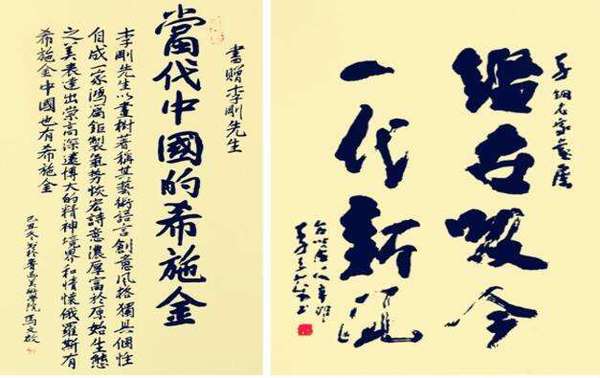 書贈李剛先生
當代中國的希施金
李剛先生以畫樹著稱其藝術語言創意風格獨具個性
自成一家鴻篇鉅製氣勢恢宏詩意濃厚富於原始生態
之美表達出崇高深遠博大的精神境界和情懷俄羅斯有
希施金中國也有希施金
己丑冬書於魯迅美術學院馬文
鑑古今
一代新